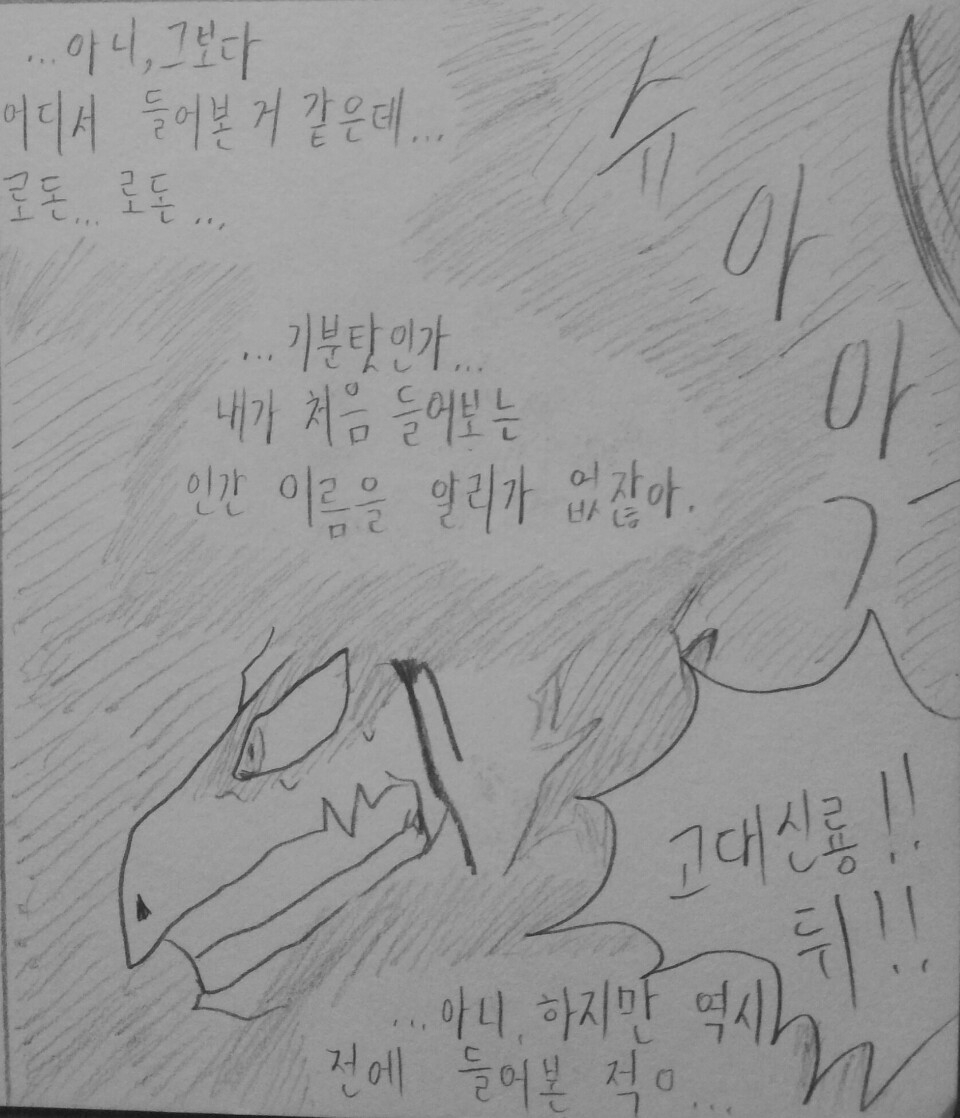 ...아니,그보다
어디서 들어본 거 같은데...
로돈... 로돈...
슈
아
아
...기분탓인가...
내가 처음 들어보는
인간 이름을 알리가 없잖아.
고대신룡!!
뒤!!
...아니, 하지만 역시
전에 들어본 적이...